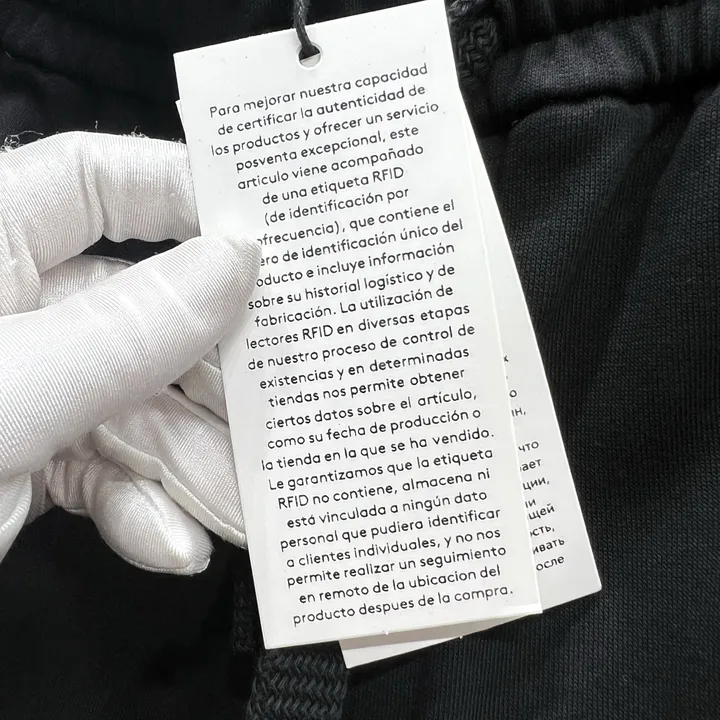 Para mejorar nuestra capacidad
de certificar la autenticidad de
los productos y ofrecer un servicio
posventa excepcional, este
artículo viene acompañado
de una etiqueta RFID
(de identificación por
ofrecuencia), que contiene el
ero de identificación único del
oducto e incluye información
sobre su historial logístico y de
fabricación. La utilización de
lectores RFID en diversas etapas
de nuestro proceso de control de
existencias y en determinadas
tiendas nos permite obtener
ciertos datos sobre el artículo,
como su fecha de producción o
la tienda en la que se ha vendido.
Le garantizamos que la etiqueta
RFID no contiene, almacena ni
está vinculada a ningún dato
personal que pudiera identificar
a clientes individuales, y no nos
permite realizar un seguimiento
en remoto de la ubicacion del
producto despues de la compra.
что
ает
ции,
ни
ющей
ость,
ивать
после